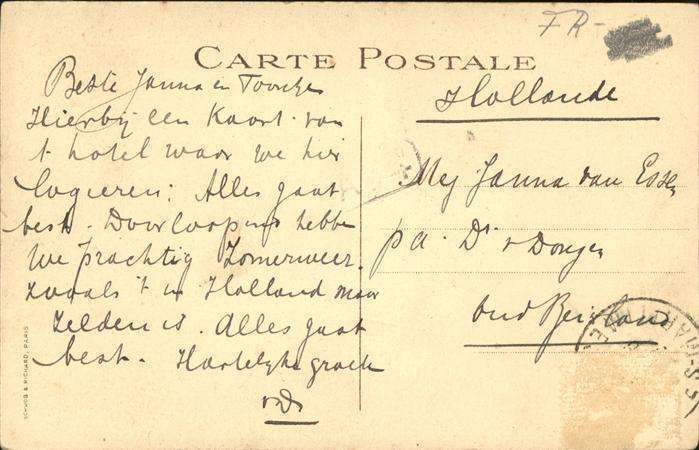 FR-
CARTE POSTALE
Beste Janna en Toontje
Hierbij een Kaart van
't hotel waar we hier
logieren: Alles gaat
best. Doorloopend hebben
we prachtig Zomerweer.
zooals 't in Holland maar
zelden is. Alles gaat
best. Hartelijke groeten
vD
Hollande
Mej Janna van Essen
pa. Dr v Dongen
Oud Beijerland
SCHWOB & RICHARD, PARIS